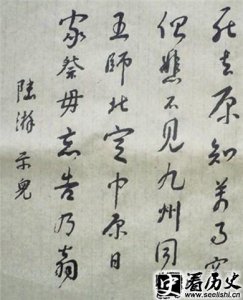 死去原知万事空
但悲不见九州同
王师北定中原日
家祭毋忘告乃翁
陆游 示儿
看历史
www.seelishi.cn